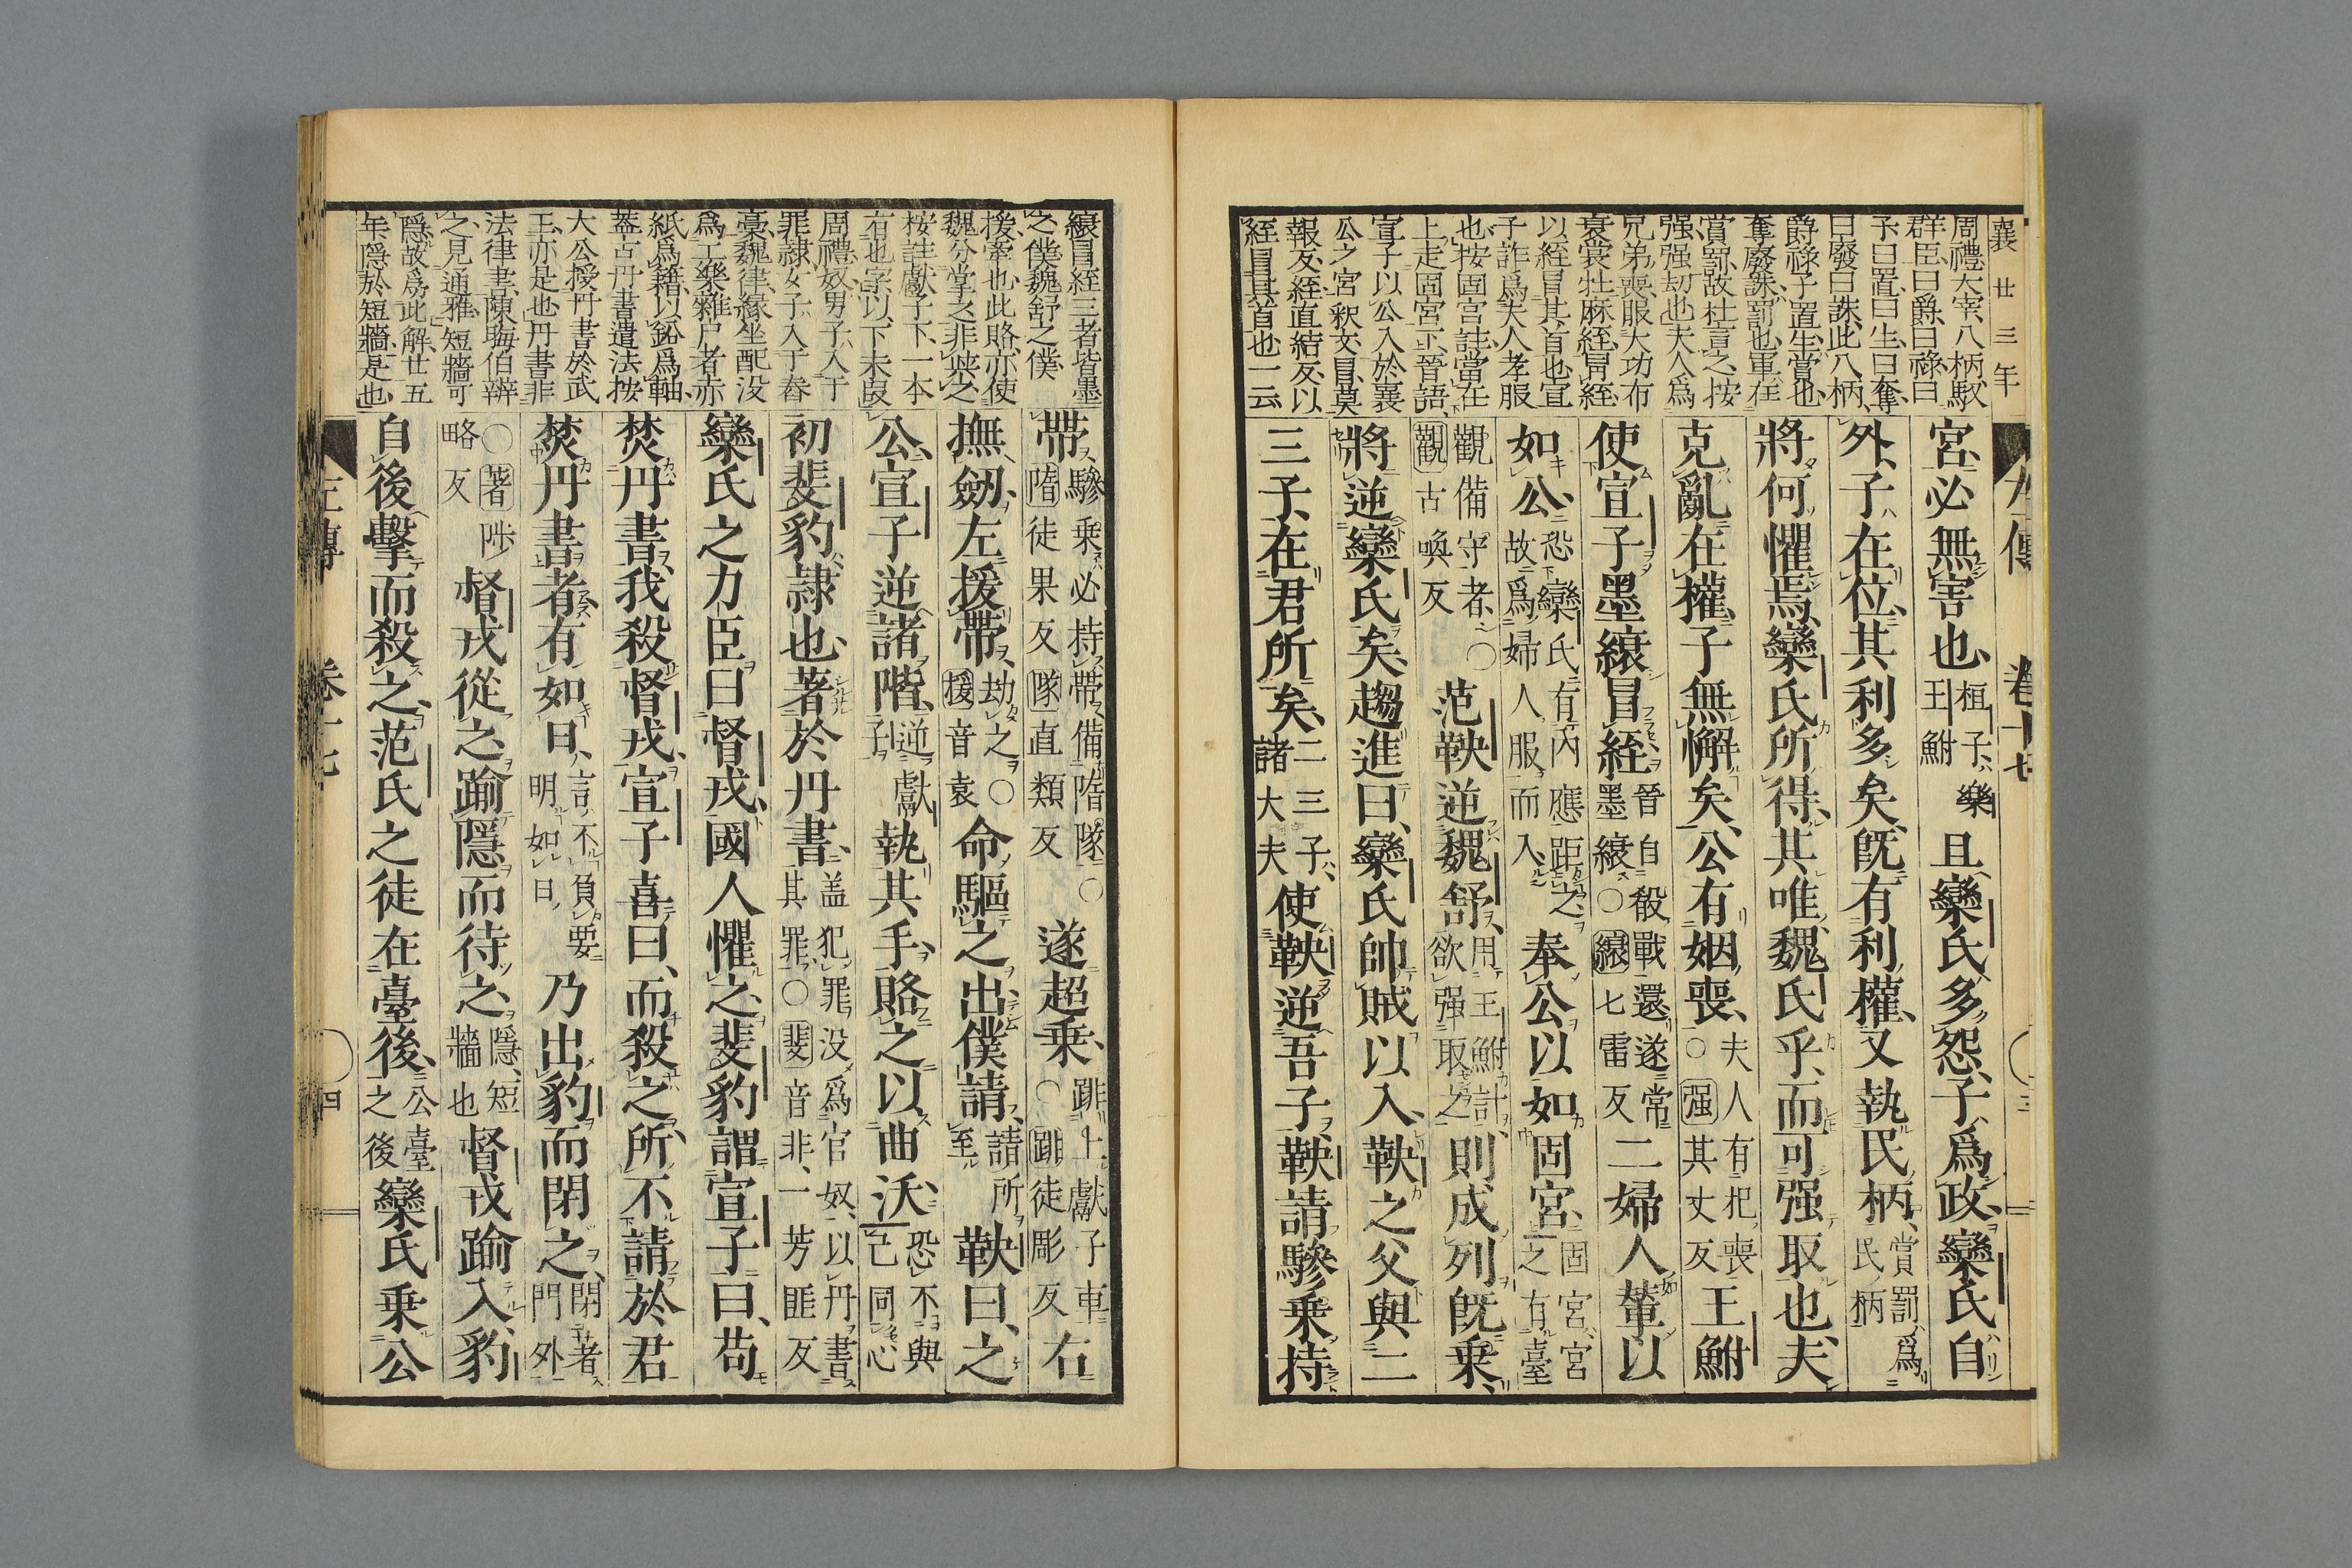 襄廿三年
周禮大宰八柄馭
群臣曰爵曰祿曰
予曰置曰生曰奪
曰廢曰誅此八柄
爵祿予置生賞也
奪廢誅罰也軍在
賞罰故杜言之按
强强劫也夫人爲
兄弟喪服大功布
衰裳牡麻絰冐絰
以絰冐其首也宣
子詐爲夫人孝服
也按固宮註當在
上走固宮下晉語
宣子以公入於襄
公之宮釈文冐莫
報反絰直結反以
絰冐其首也一云
左傳 卷十七 三
宮必無害也桓子樂王鮒且欒氏多怨子爲政欒氏自
外子在位其利多矣旣有利權又執民柄賞罰爲民柄
將何懼焉欒氏所得其唯魏氏乎而可强取也夫
克亂在權子無懈矣公有姻喪夫人有杞喪○强其丈反王鮒
使宣子墨縗冒絰晉自殽戰還遂常墨縗○縗七雷反二婦人輦以
如公恐欒氏有內應距之故爲婦人服而入奉公以如固宮固宮宮之有臺
觀備守者○觀古喚反范鞅逆魏舒用王鮒計欲强取之則成列旣乗
將逆欒氏矣趨進曰欒氏帥賊以入鞅之父與二
三子在君所矣二三子諸大夫使鞅逆吾子鞅請驂乗持
縗冐絰三者皆墨
之僕魏舒之僕
援牽也此賂亦使
魏分掌之非與之
按註獻子下一本
有也字以下未叚
周禮奴男子入于
罪隷女子入于舂
藁魏律緣坐配没
爲工樂雜戸者亦
紙爲籍以鉛爲軸
葢古丹書遣法按
大公授丹書於武
王亦是也丹書非
法律書陳晦伯辨
之見通雅短牆可
隱故爲此解廿五
年隱於短牆是也
帶驂乗必持帶備隋隊○隋徒果反隊直類反遂超乗跳上獻子車○跳徒彫反右
撫劒左援帶劫之○援音袁命驅之出僕請請所至鞅曰之
公宣子逆諸階逆獻子執其手賂之以曲沃恐不與己同心
初斐豹隷也著於丹書盖犯罪没爲官奴以丹書其罪○斐音非一芳匪反
欒氏之力臣曰督戎國人懼之斐豹謂宣子曰苟
焚丹書我殺督戎宣子喜曰而殺之所不請於君
焚丹書者有如日言不負要明如日乃出豹而閉之閉著門外
○著陟略反督戎從之踰隱而待之隱短牆也督戎踰入豹
自後擊而殺之范氏之徒在臺後公臺之後欒氏乗公
左傳 卷十七 四